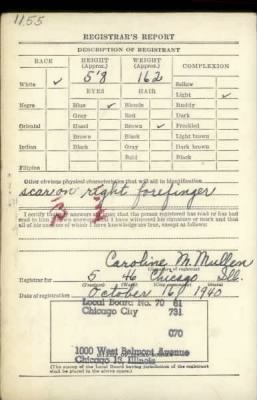 1155
REGISTRAR'S REPORT
DESCRIPTION OF REGISTRANT
RACE HEIGHT (Approx.) WEIGHT (Approx.) COMPLEXION
White ✓ 5'8 162 Sallow
EYES HAIR Light ✓
Negro Blue ✓ Blonde Ruddy
Gray Red Dark
Oriental Hazel Brown ✓ Freckled
Brown Black Light brown
Indian Black Gray Dark brown
Bald Black
Filipino
Other obvious physical characteristics that will aid in identification
scar on right forefinger
I certify that my answers are true; that the person registered has read or has had
read to him his own answers; that I have witnessed his signature or mark and that
all of his answers of which I have knowledge are true, except as follows:
Caroline M. Mullen
(Signature of registrar)
Registrar for 5 46 Chicago Ill.
(Precinct) (Ward) (City or county) (State)
Date of registration October 16, 1940
Local Board No. 70 61
Chicago City 731
070
1000 West Belmont Avenue
Chicago 13, Illinois
(The stamp of the Local Board having jurisdiction of the registrant
shall be placed in the above space.)